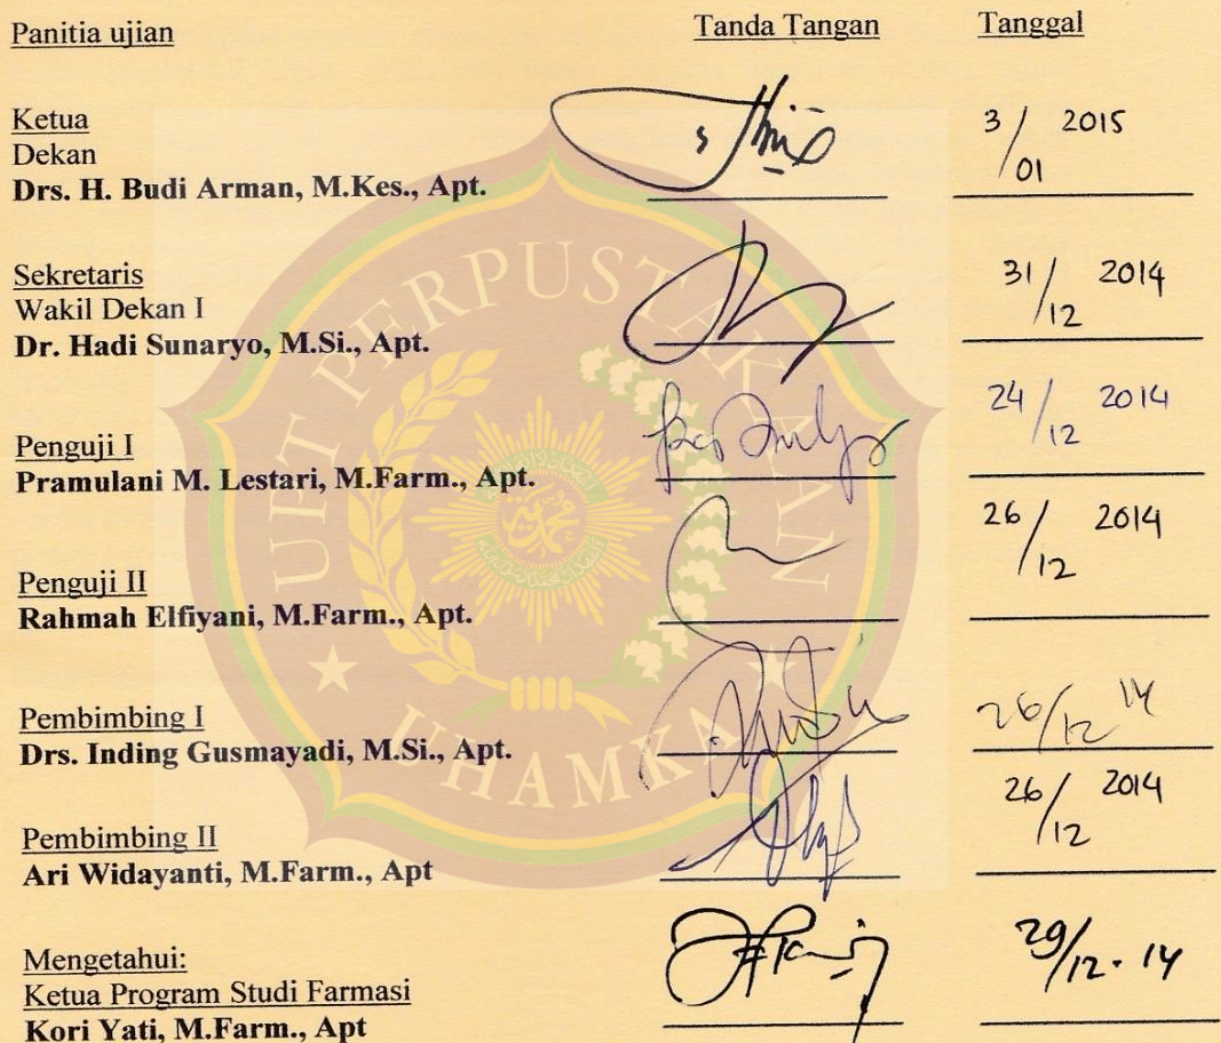 Panitia ujian Tanda Tangan Tanggal
Ketua
Dekan
Drs. H. Budi Arman, M.Kes., Apt.
3/01 2015
Sekretaris
Wakil Dekan I
Dr. Hadi Sunaryo, M.Si., Apt.
31/12 2014
Penguji I
Pramulani M. Lestari, M.Farm., Apt.
24/12 2014
Penguji II
Rahmah Elfiyani, M.Farm., Apt.
26/12 2014
Pembimbing I
Drs. Inding Gusmayadi, M.Si., Apt.
26/12 14
Pembimbing II
Ari Widayanti, M.Farm., Apt
26/12 2014
Mengetahui:
Ketua Program Studi Farmasi
Kori Yati, M.Farm., Apt
29/12-14
UPT PERPUSTAKAAN
UHAMKA